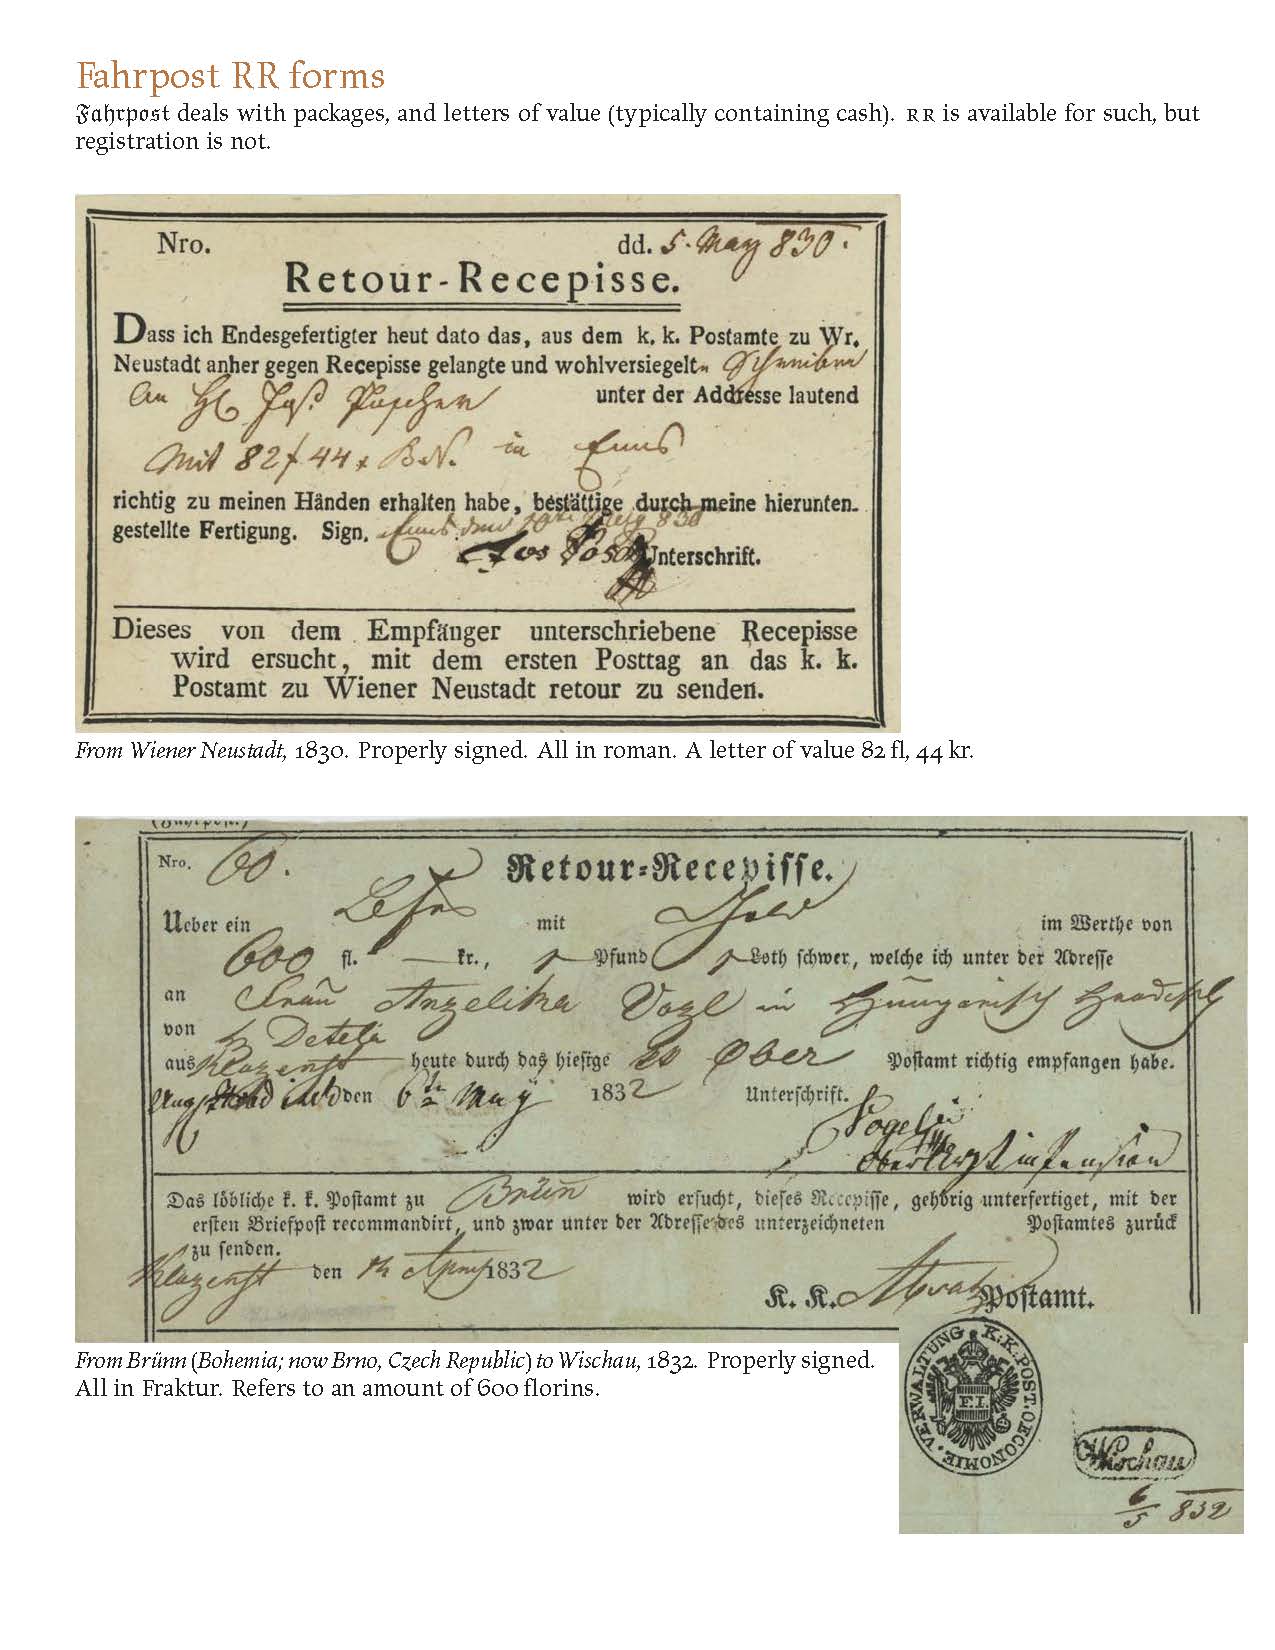 Fahrpost RR forms
Fahrpost deals with packages, and letters of value (typically containing cash). RR is available for such, but
registration is not.
Nro. dd. 5. May 830.
Retour-Recepisse.
Dass ich Endesgefertigter heut dato das, aus dem k. k. Postamte zu Wr.
Neustadt anher gegen Recepisse gelangte und wohlversiegelte Schreiben
An unter der Addresse lautend
Mit 82 f 44 x B.N. in Enns
richtig zu meinen Händen erhalten habe, bestättige durch meine hierunten
gestellte Fertigung. Sign. Enns den
Unterschrift.
Dieses von dem Empfänger unterschriebene Recepisse
wird ersucht, mit dem ersten Posttag an das k. k.
Postamt zu Wiener Neustadt retour zu senden.
From Wiener Neustadt, 1830. Properly signed. All in roman. A letter of value 82 fl, 44 kr.
(Fahrpost.)
Nro. 60.
Retour-Recepisse.
Ueber ein mit im Werthe von
600 fl. — kr., Pfund Loth schwer, welche ich unter der Adresse
an Frau Angelika Vogl in Hungarisch Hradisch
von H Detela
aus Klagenft heute durch das hiesige Ober Postamt richtig empfangen habe.
den 6th May 1832 Unterschrift.
Oberarzt in Pension
Das löbliche k. k. Postamt zu Brün wird ersucht, dieses Recepisse, gehörig unterfertiget, mit der
ersten Briefpost recommandirt, und zwar unter der Adresse des unterzeichneten Postamtes zurück
zu senden.
Klagenft den April 1832
K. K. Postamt.
From Brünn (Bohemia; now Brno, Czech Republic) to Wischau, 1832. Properly signed.
All in Fraktur. Refers to an amount of 600 florins.
K: K: POST. OECONOMIE. VERWALTUNG
F.I.
Wischau
6/5 832